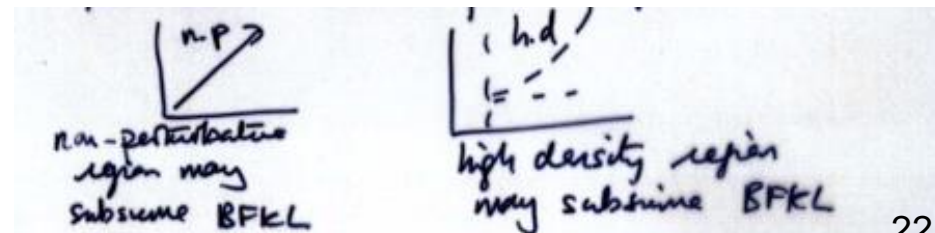 n.p
non-perturbative
region may
subsume BFKL
h.d
high density region
may subsume BFKL
22